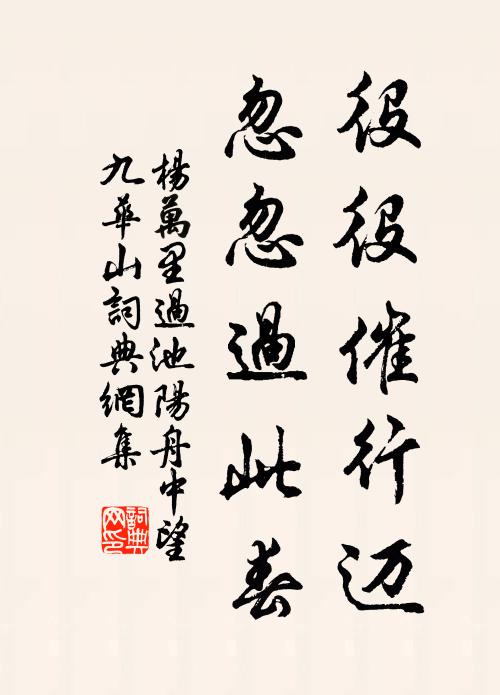 役役催行迈
忽忽過此春
楊萬里過池陽舟中望
九華山詞典網集
詞典
网印